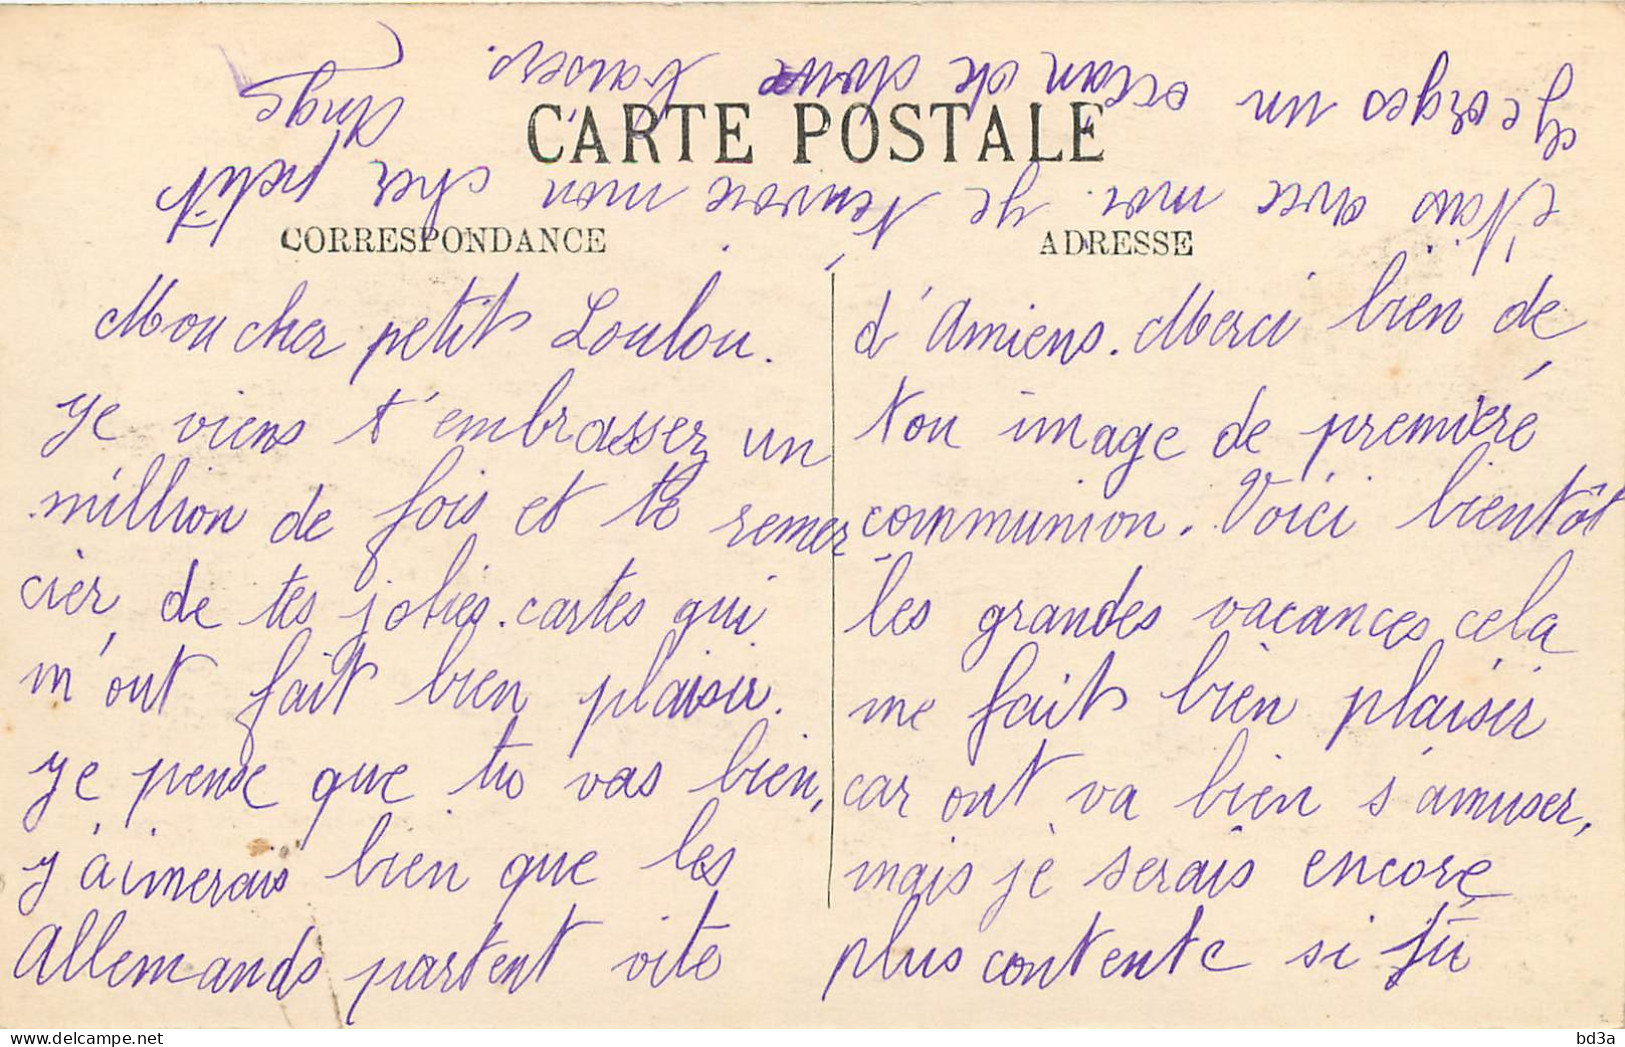 CARTE POSTALE
CORRESPONDANCE
ADRESSE
Mon cher petit Loulou.
Je viens t'embrasser un
million de fois et te remer
cier, de tes jolies cartes qui
m'ont fait bien plaisir.
Je pense que tu vas bien,
j'aimerais bien que les
Allemands partent vite
d'Amiens. Merci bien de
ton image de première
communion. Voici bientôt
les grandes vacances cela
me fait bien plaisir
car ont va bien s'amuser,
mais je serais encore
plus contente si tu
avec moi. Je t'envoie mon cher petit
Georges un océan de doux baisers.
Ange
bd3a